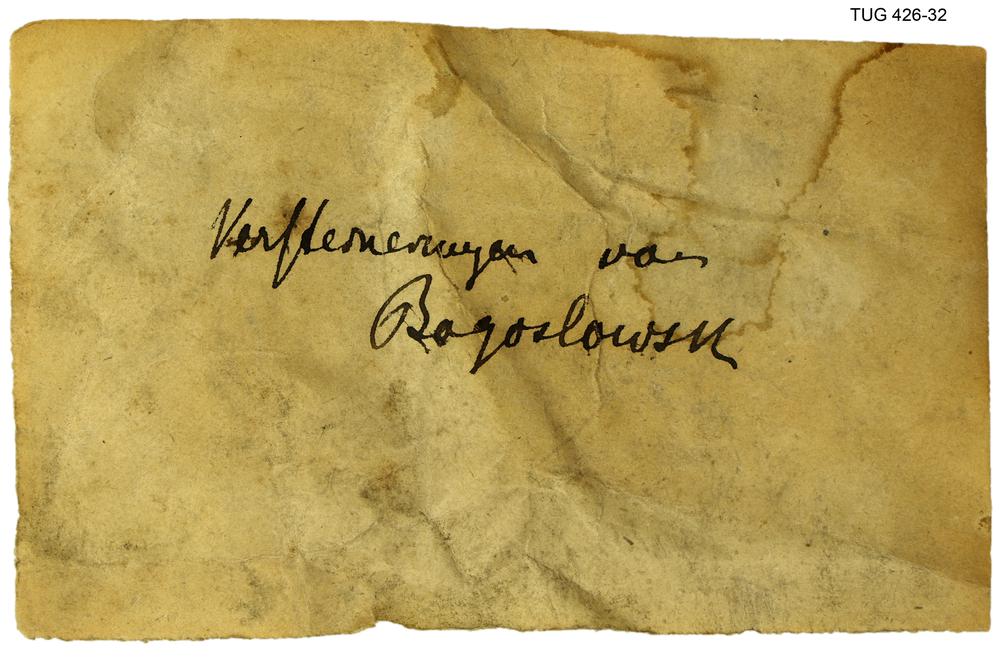 TUG 426-32
Versteinerungen von
Bogoslowsk